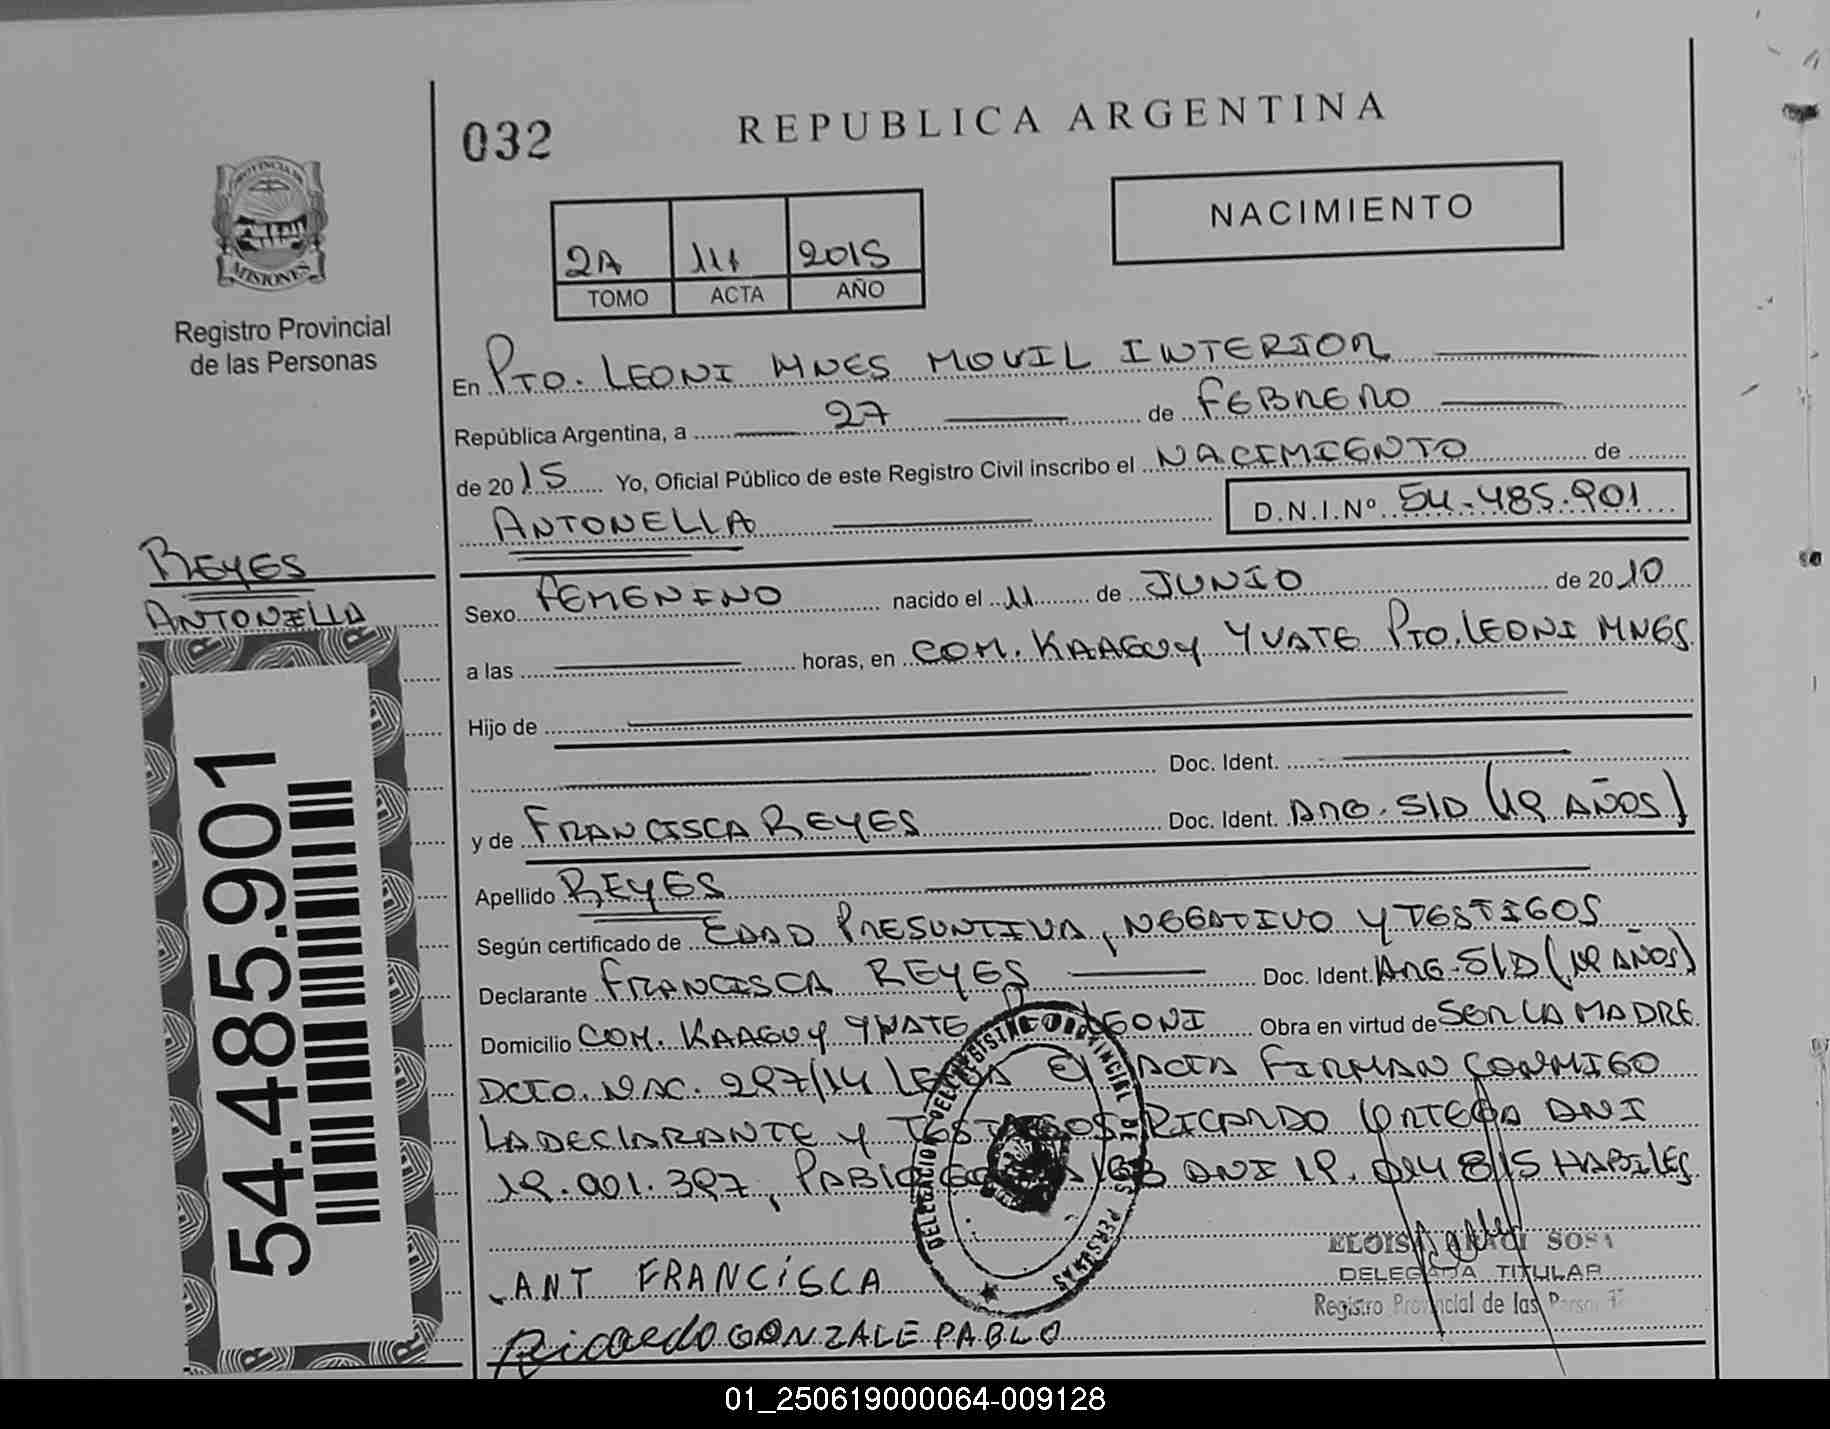 032
REPUBLICA ARGENTINA
NACIMIENTO
2A 111 2015
TOMO ACTA AÑO
PROVINCIA DE
MISIONES
Registro Provincial
de las Personas
En PTO. LEONI MNES MOVIL INTERIOR
República Argentina, a 27 de FEBRERO
de 2015 Yo, Oficial Público de este Registro Civil inscribo el NACIMIENTO de
ANTONELLA D.N.I.Nº 54.485.901
REYES
ANTONELLA
54.485.901
Sexo FEMENINO nacido el 11 de JUNIO de 2010
a las horas, en COM. KAAGUY YVATE PTO. LEONI MNES.
Hijo de
Doc. Ident.
y de FRANCISCA REYES Doc. Ident. ARG. S/D (19 AÑOS)
Apellido REYES
Según certificado de EDAD PRESUNTIVA, NEGATIVO Y TESTIGOS
Declarante FRANCISCA REYES Doc. Ident. ARG. S/D (19 AÑOS)
Domicilio COM. KAAGUY YVATE LEONI Obra en virtud de SER LA MADRE
DCTO. NAC. 297/14 LEIDA EL ACTA FIRMAN CONMIGO
LA DECLARANTE Y TESTIGOS RICARDO ORTEGA DNI
19.001.397, PABLO DNI 19. HABILES
DELEGACION DEL REGISTRO PROVINCIAL DE LAS PERSONAS
ANT FRANCISCA
Ricardo GONZALE PABLO
SOSA
DELEGADA TITULAR
Registro Provincial de las
01_250619000064-009128